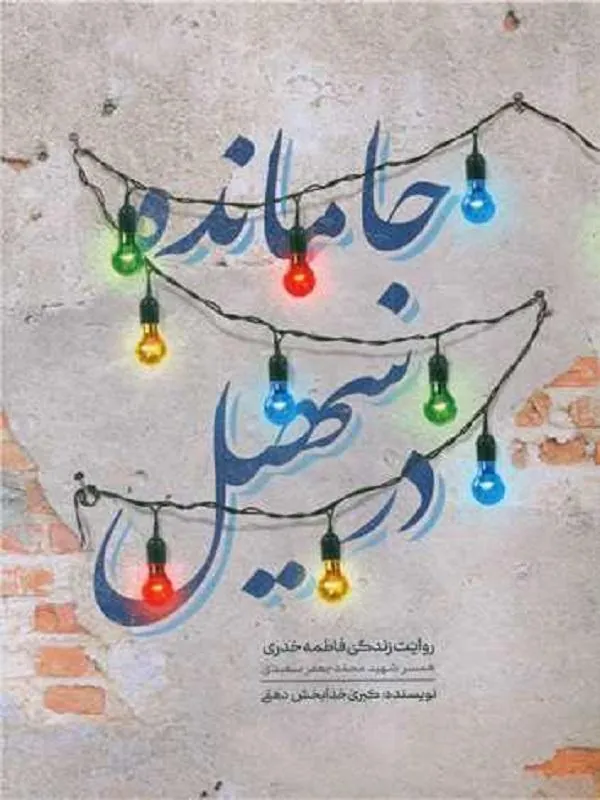 جا مانده
در سهیل
روایت زندگی فاطمه خدری
همسر شهید محمدجعفر سعیدی
نویسنده: کبری خدابخش دهقی